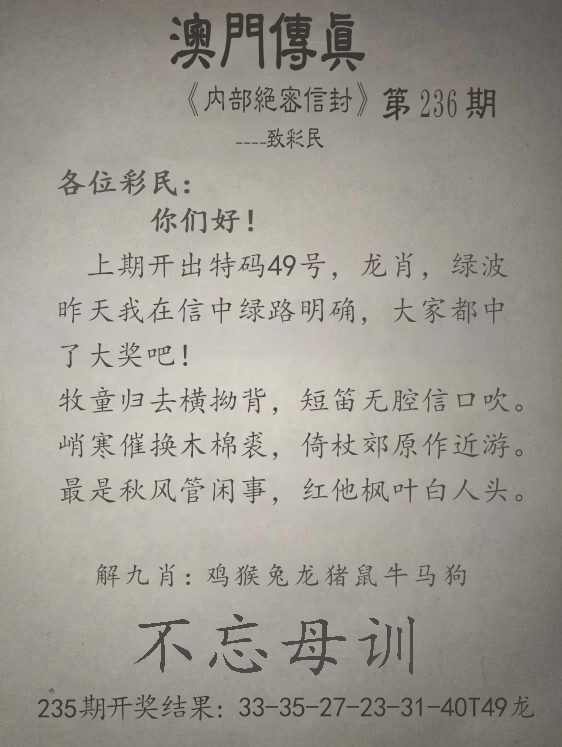 澳門傳真
《内部絕密信封》第236期
----致彩民
各位彩民：
你们好！
上期开出特码49号，龙肖，绿波
昨天我在信中绿路明确，大家都中
了大奖吧！
牧童归去横拗背，短笛无腔信口吹。
峭寒催换木棉裘，倚杖郊原作近游。
最是秋风管闲事，红他枫叶白人头。
解九肖：鸡猴兔龙猪鼠牛马狗
不忘母训
235期开奖结果：33-35-27-23-31-40T49龙